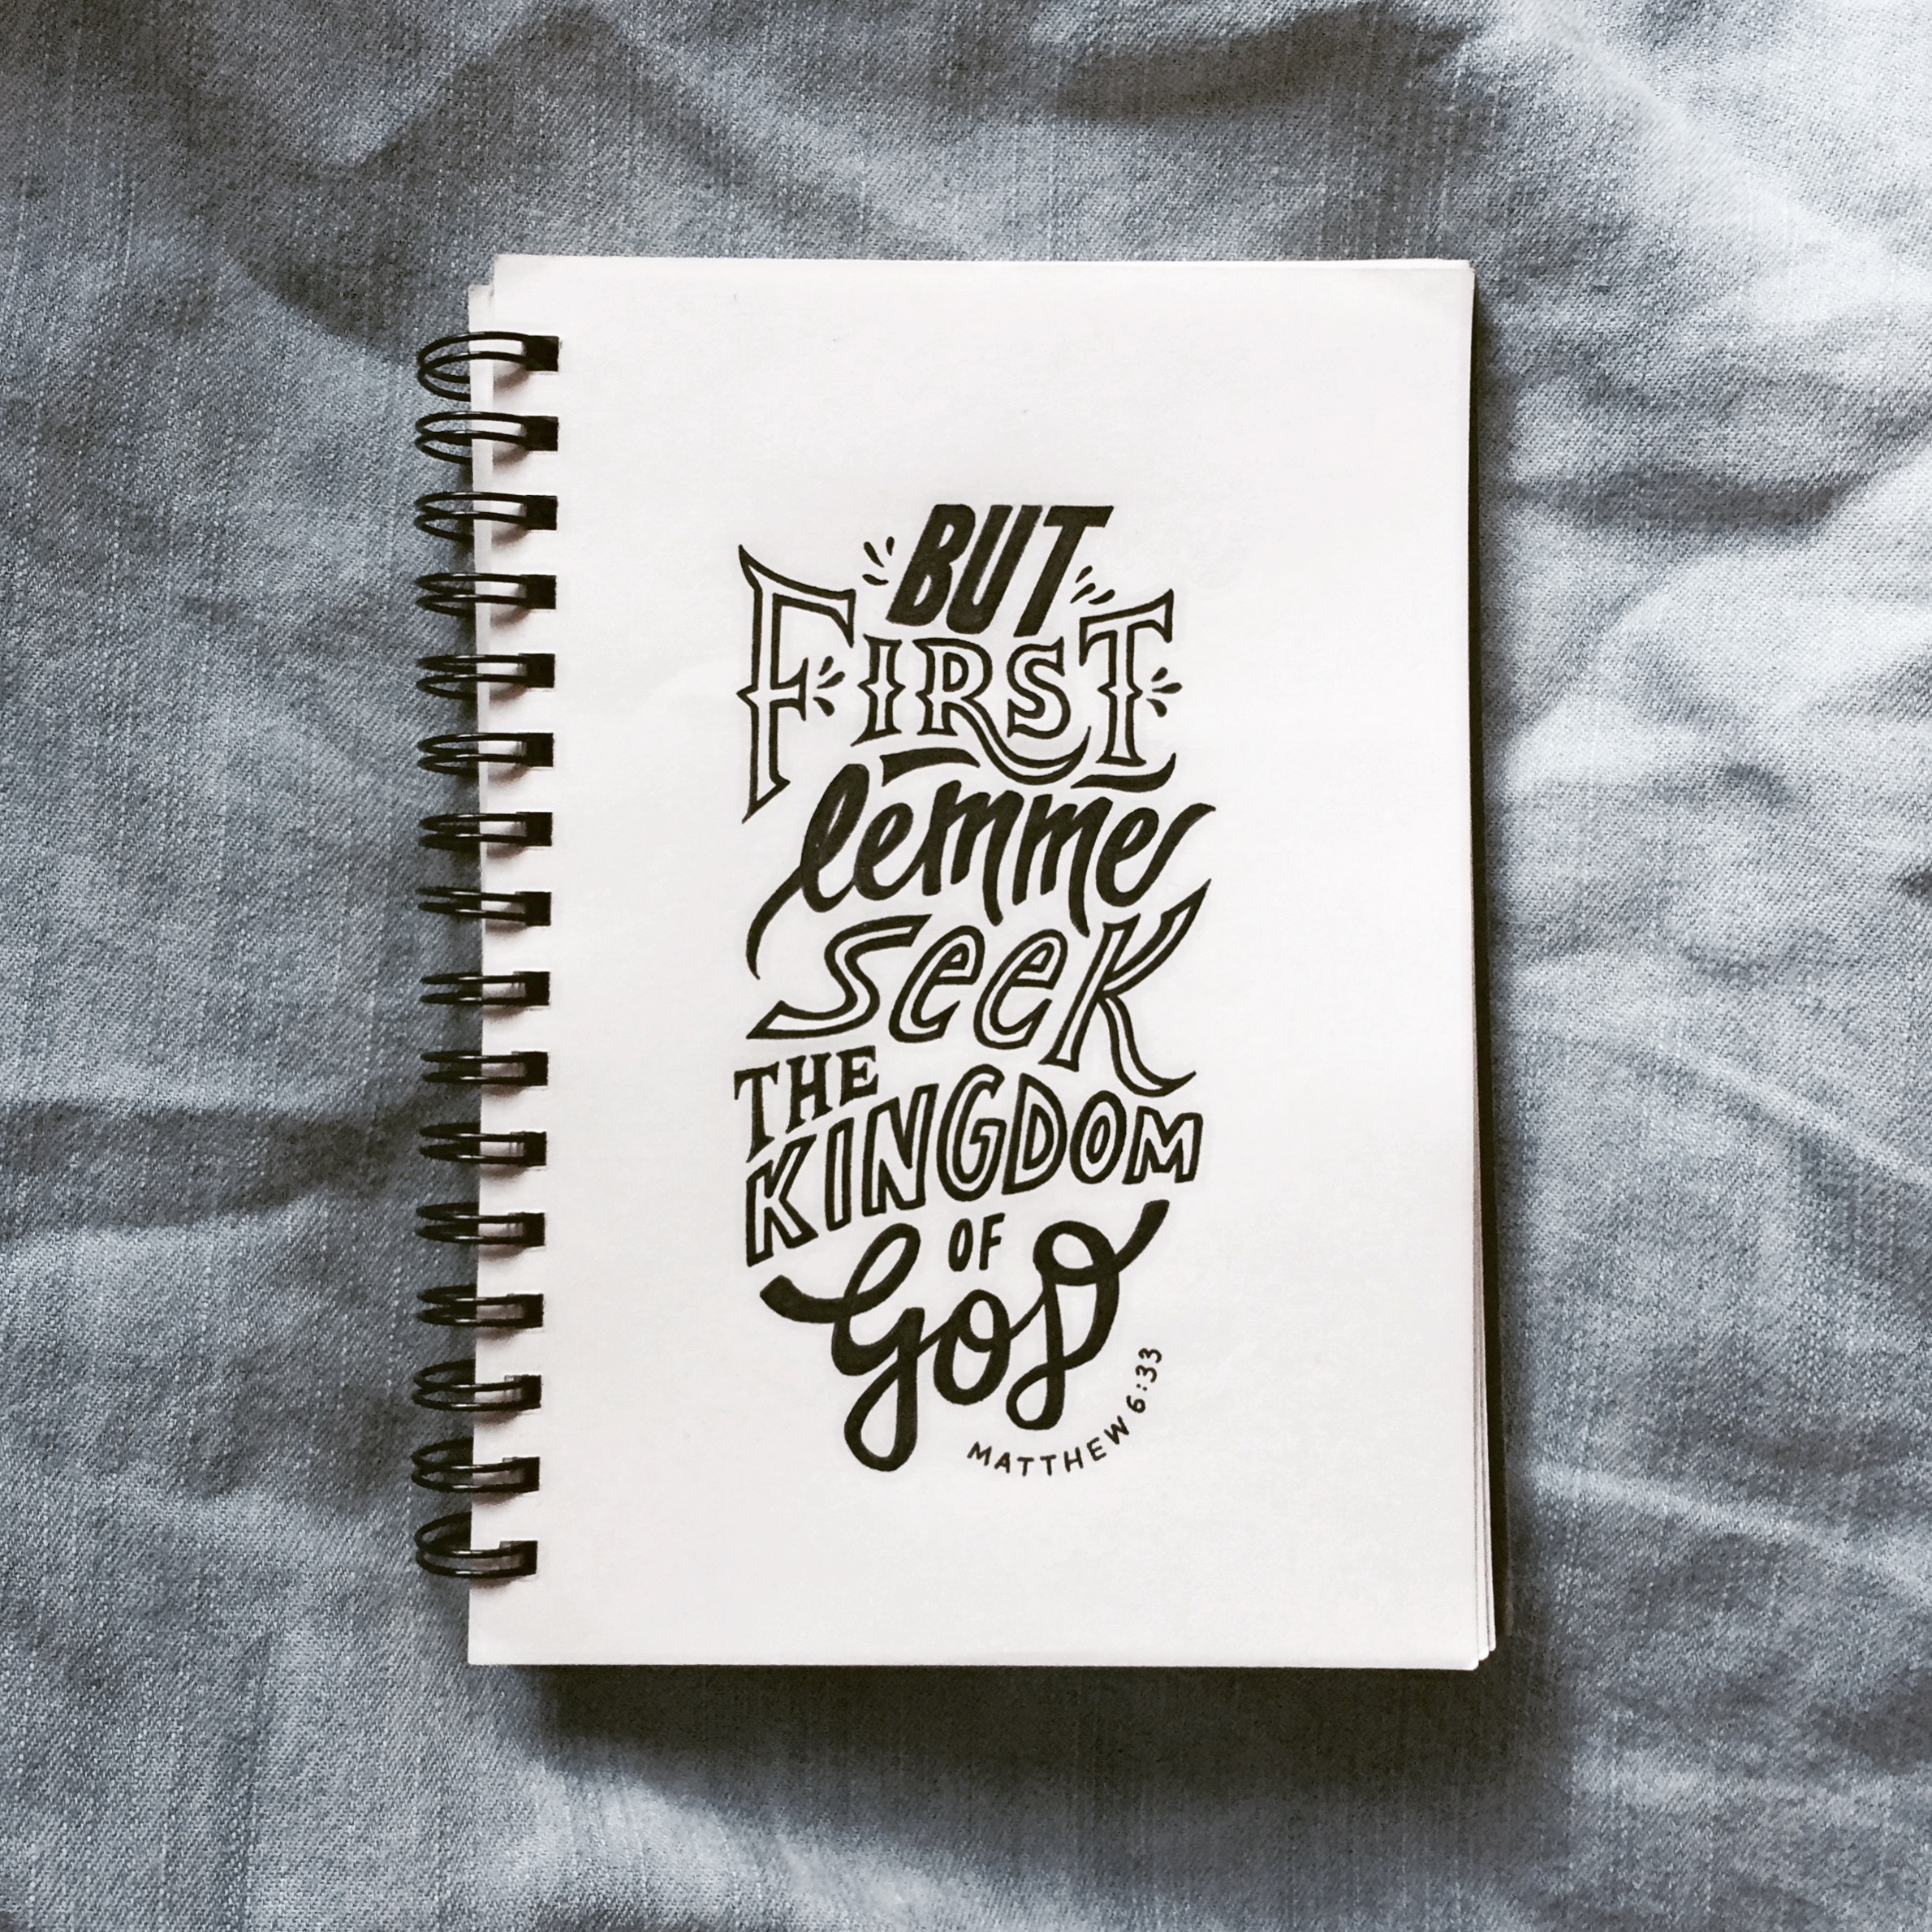 BUT
FIRST
lemme
seek
THE
KINGDOM
OF
GOD
MATTHEW 6:33